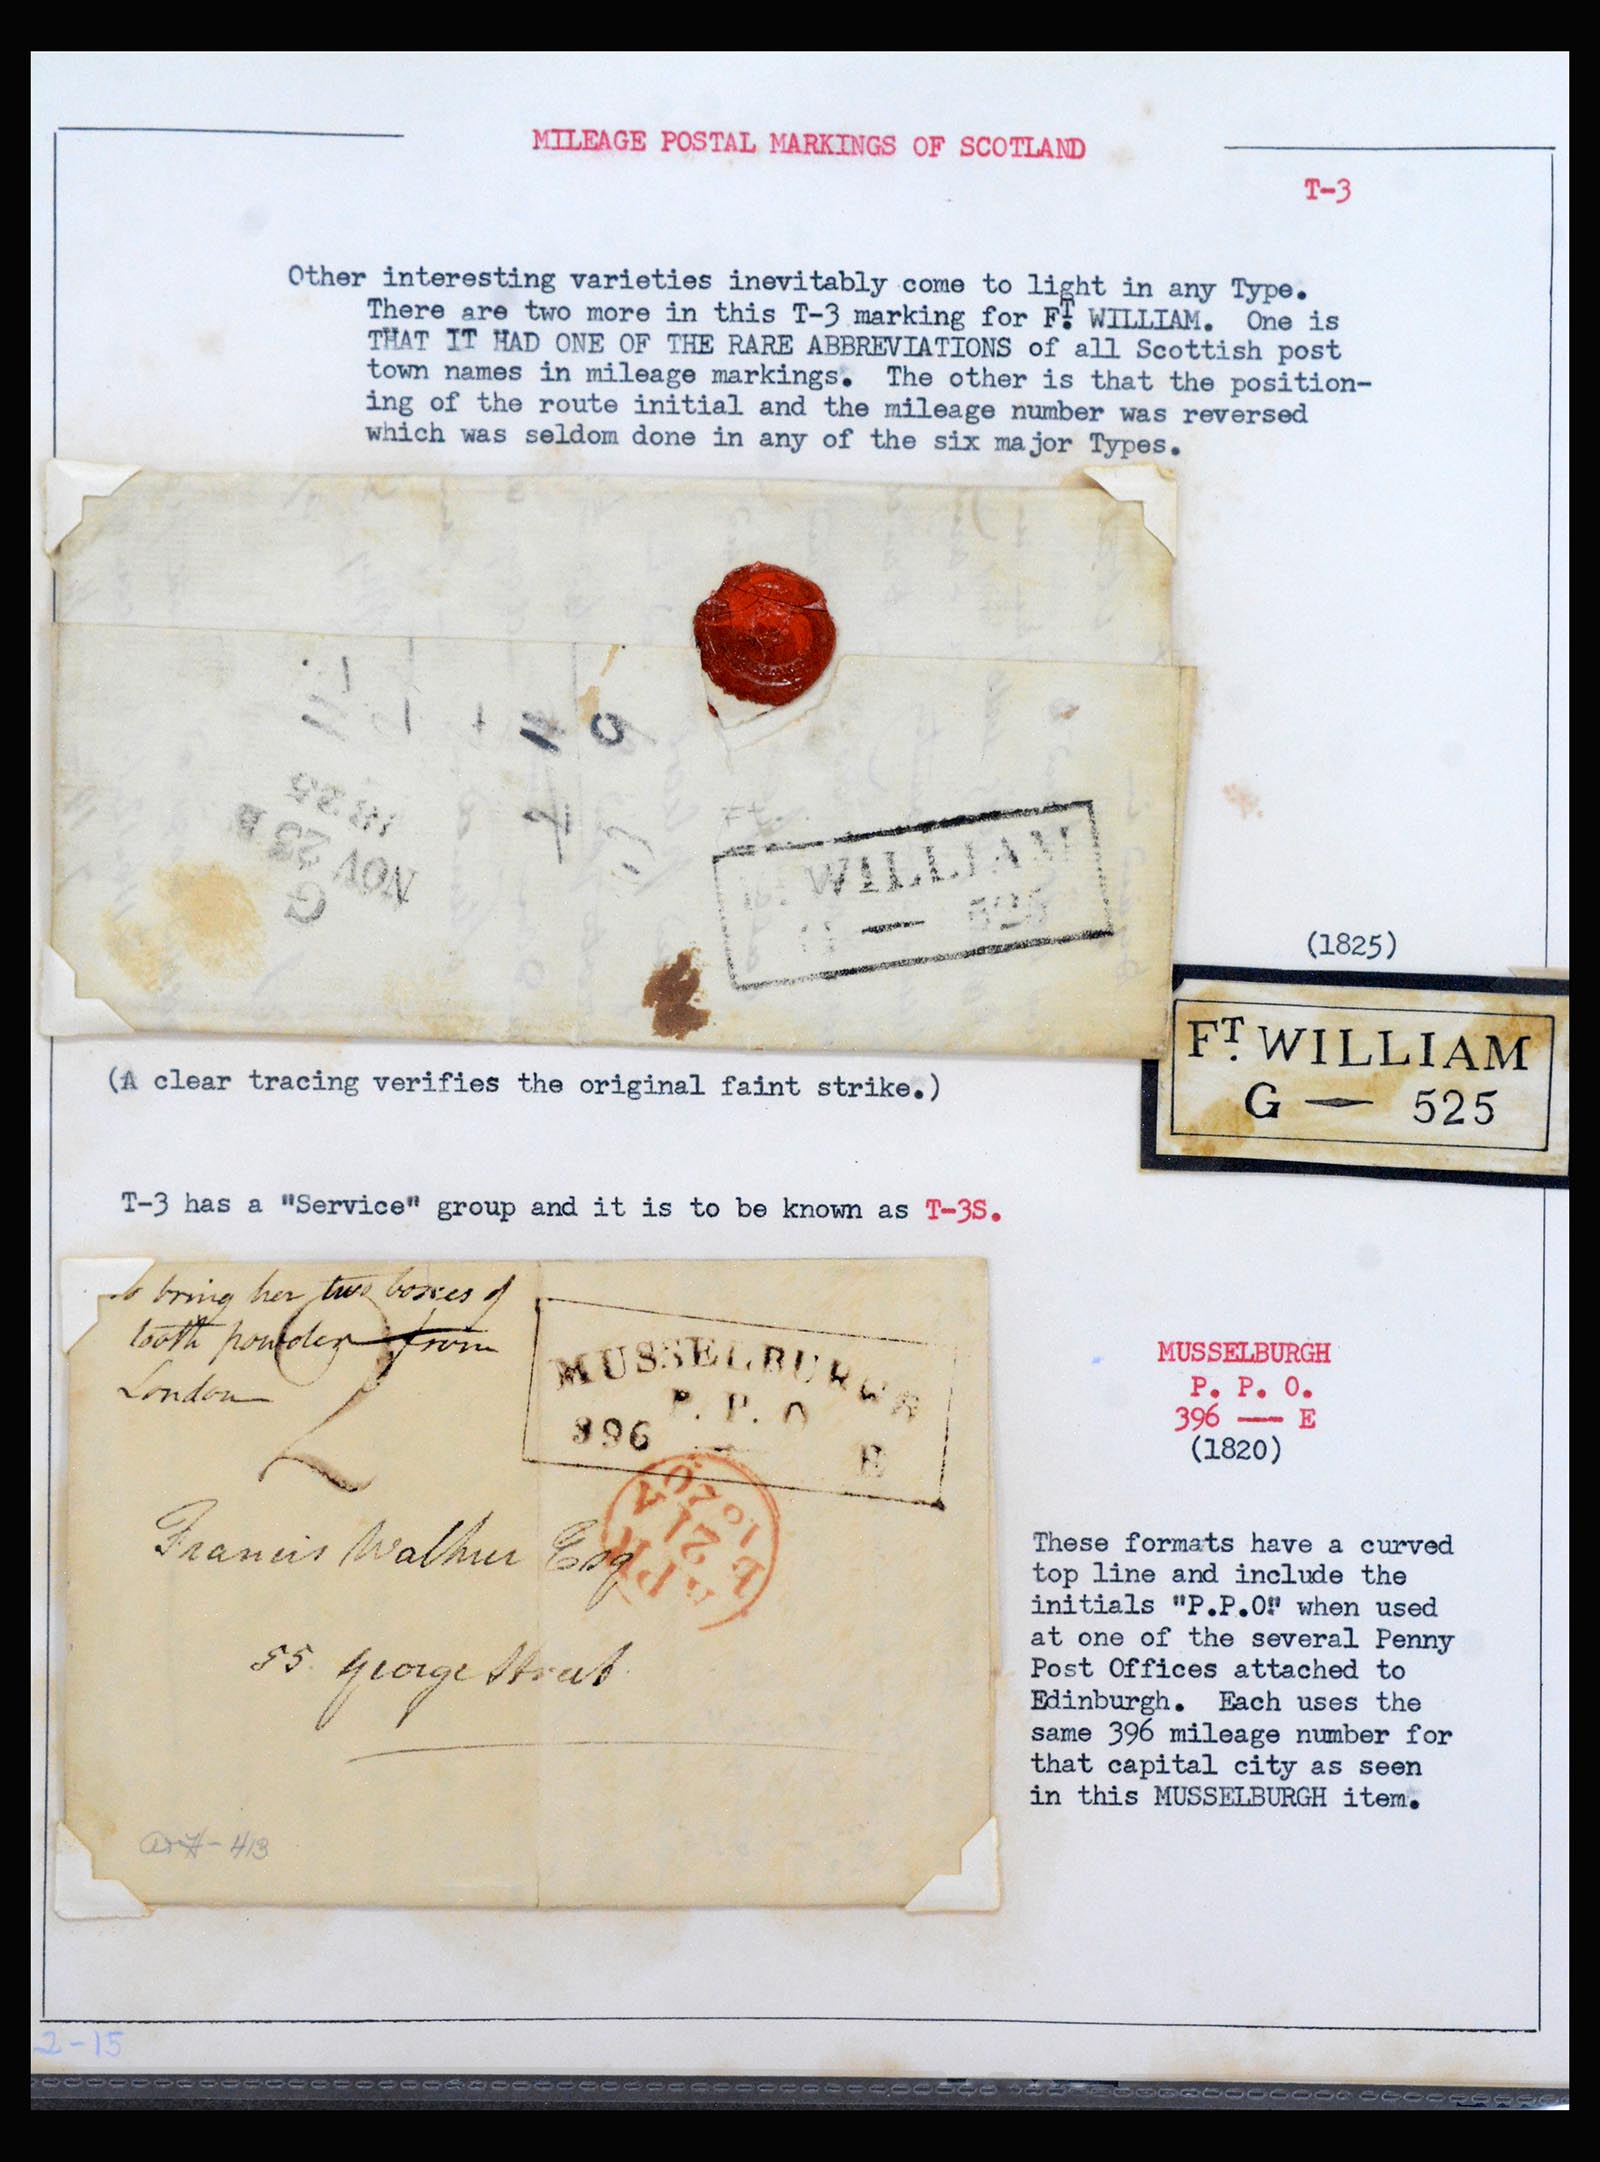 MILEAGE POSTAL MARKINGS OF SCOTLAND
T-3
Other interesting varieties inevitably come to light in any Type.
There are two more in this T-3 marking for FT. WILLIAM. One is
THAT IT HAD ONE OF THE RARE ABBREVIATIONS of all Scottish post
town names in mileage markings. The other is that the position-
ing of the route initial and the mileage number was reversed
which was seldom done in any of the six major Types.
NOV
WILLIAM
525
(1825)
FT. WILLIAM
G — 525
(A clear tracing verifies the original faint strike.)
T-3 has a "Service" group and it is to be known as T-3S.
to bring her two boxes of
tooth powder from
London
2
MUSSELBURGH
P. P. O
396 — E
21
Francis Walker Esq
55 George Street
413
MUSSELBURGH
P. P. O.
396 — E
(1820)
These formats have a curved
top line and include the
initials "P.P.O." when used
at one of the several Penny
Post Offices attached to
Edinburgh. Each uses the
same 396 mileage number for
that capital city as seen
in this MUSSELBURGH item.
2-15